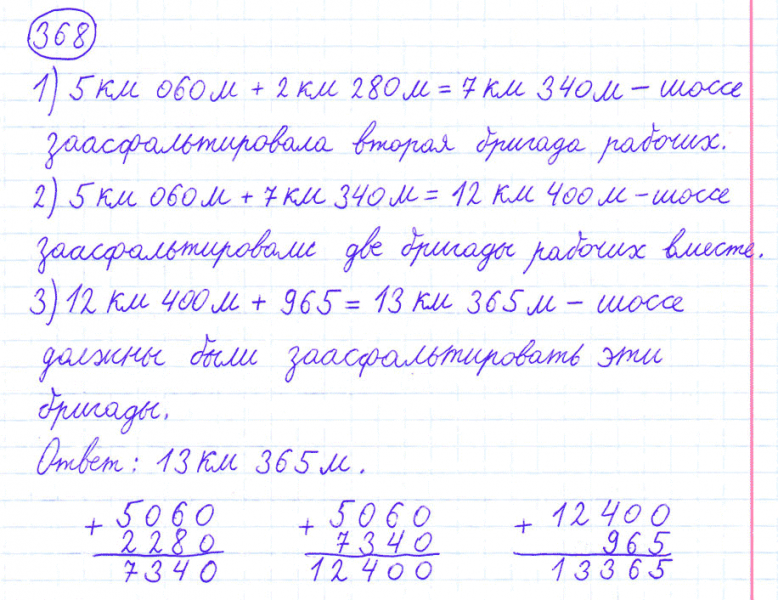 368
1) 5 км 060 м + 2 км 280 м = 7 км 340 м - шоссе
заасфальтировала вторая бригада рабочих.
2) 5 км 060 м + 7 км 340 м = 12 км 400 м - шоссе
заасфальтировали две бригады рабочих вместе.
3) 12 км 400 м + 965 = 13 км 365 м - шоссе
должны были заасфальтировать эти
бригады.
Ответ: 13 км 365 м.
+ 5060 + 5060 + 12400
2280 7340 965
7340 12400 13365